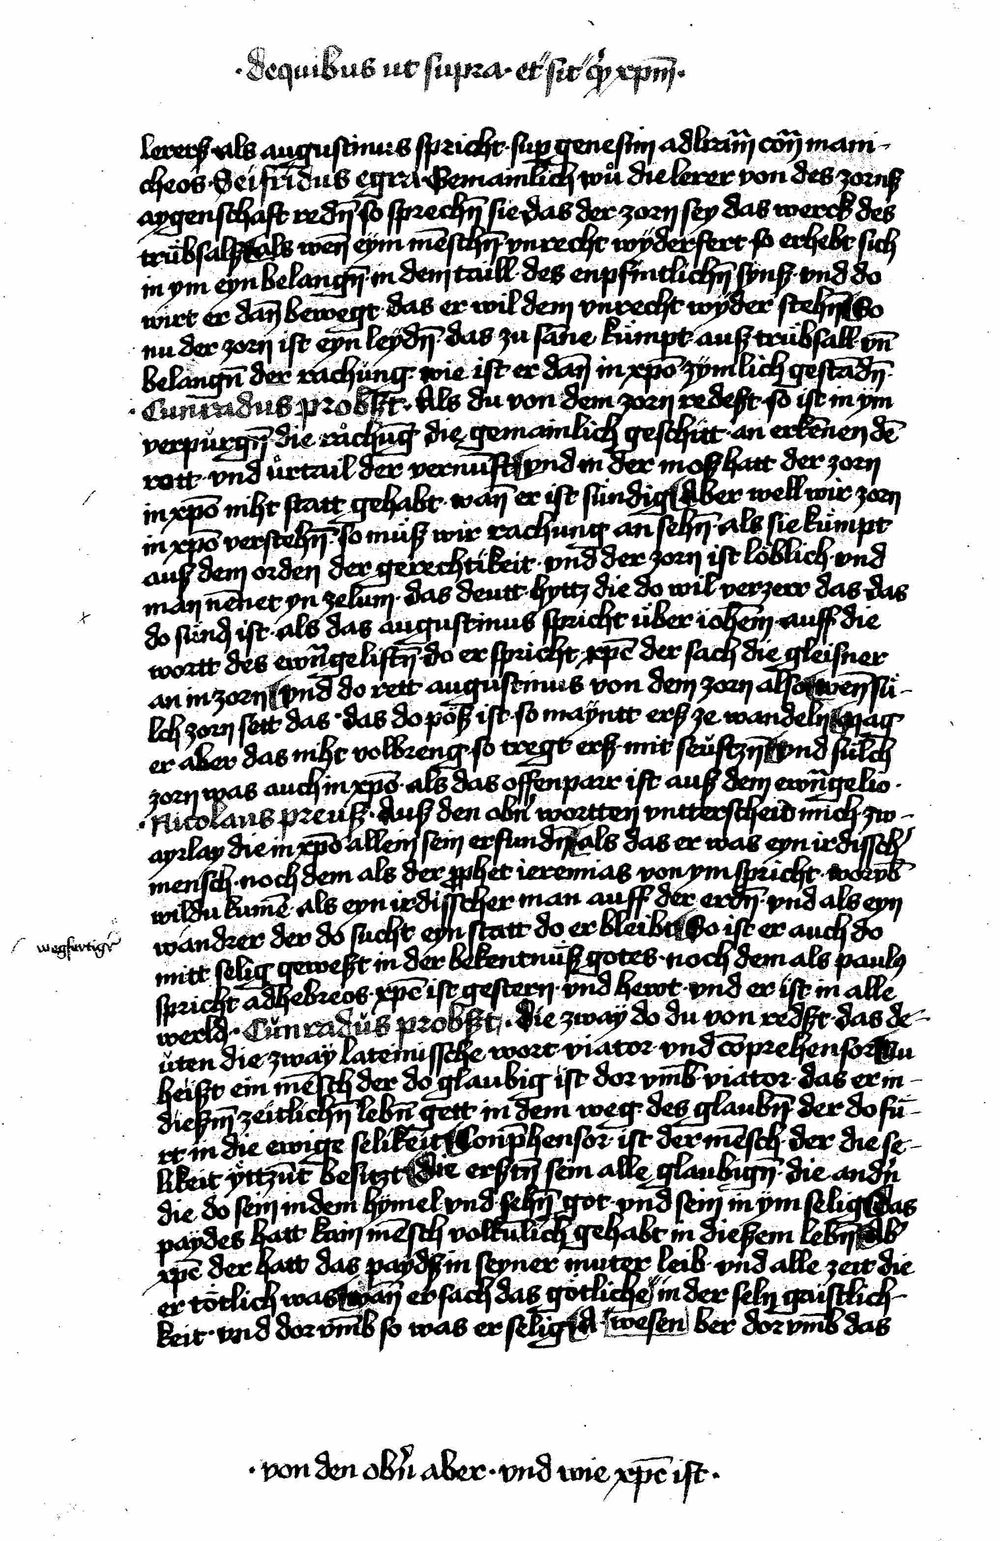 · dequibus ut supra · et sit qr̄ xp̄m ·
lererß · als augustinus spricht · sup̱ genesim adlr̄am̄ cōn̄ mani-
cheos · Seifridus egra · Gemainlich wů die lerer von des zornß
aygenschaft redn̄ · so sprechn̄ sie · das der zorn sey das werck des
trübsalß · als wen̄ eym mēschn̄ vnrecht wyderfert · so erhebt sich
in ym eyn belangn̄ · in dem taill · des enpfintlichn̄ synß · vnd do
wirt er dan̄ bewegt · das er wil dem vnrecht wyder stehn̄ So
nu der zorn ist eyn leydn̄ · das zu sāne kůmpt · auß trübsall vn̄
belangn̄ der rachüng · wie ist er dan̄ in xp̄o zymlich gestādn̄
· Cunradus probßt · Als du von dem zorn redeßt · so ist in ym
verpůrgn̄ · die råchūg · die gemainlich geschitt · an erkēnen dē
rott · vnd ůrtail der vernüft vnd in der moß hatt der zorn
in xp̄o niht statt gehabt · wan̄ er ist sündig Aber well wir zorn
in xp̄o verstehn̄ · so müß wir rachung an sehn̄ · als sie kůmpt
auß dem orden der gerechtikeit · vnd der zorn ist löblich · vnd
man nēnet yn zelum · das deutt · hyttz die do wil verzerr das · das
do sünd ist · als das augustinus spricht über iohēm · auff die
wortt des ewn̄gelistn̄ · do er spricht · xp̄c der sach die gleisner
an in zorn vnd do rett augustinus von dem zorn also wen̄ sü-
lch zorn sett das · das do pöß ist · so mayntt erß ze wandeln mag
er aber das niht volbreng · so tregt erß · mit seůftzn̄ vnd sülch
zorn was auch in xp̄o · als das offenparr ist auß dem ewn̄gelio ·
· Nicolaus preuß · Auß den obn̄ wortten vntterscheid mich zw-
ayrlay die in xp̄o allein sein erfundn̄ als das er was eyn irdissch
mensch · noch dem als der ꝓphet ieremias von ym spricht · worūb
wildu kumē · als eyn irdisscher man auff der erdn̄ · vnd als eyn
wandrer der do sucht eyn statt do er bleibt So ist er auch do
wegfertigr̄
mitt selig geweßt in der bekentnüß gotes · noch dem als paulus
spricht adhebreos · xp̄c ist gestern · vnd hewt · vnd er ist in alle
werld · Cůnradůs probßt · die zway do du von redßt · das de-
üten die zway lateinissche wort · viator · vnd cōprehensor Nu
heißt ein mēsch der do glaubig ist dor vmb viator · das er in-
dießm̄ zeitlichn̄ lebn̄ gett in dem weg · des glaubn̄ · der do fü-
rt in die ewige selikeit Conp̄hensor ist der mēsch · der die se-
likeit yttzūt besitzt Die erstn̄ sein alle glaubign̄ · die andn̄
die do sein in dem hymel vnd sehn̄ got · vnd sein in ym selig das
paydes hatt kain mēsch volkūlich gehabt in dießem lebn̄ Ab̄
xp̄c der hatt das paydß in seyner muter leib · vnd alle zeit die
er tötlich was wan̄ er sach das götliche in der seln gaistlich-
keit · vnd dor vmb so was er selig A wesen ber dor vmb das
· von den obn̄ aber · vnd wie xp̄c ist ·